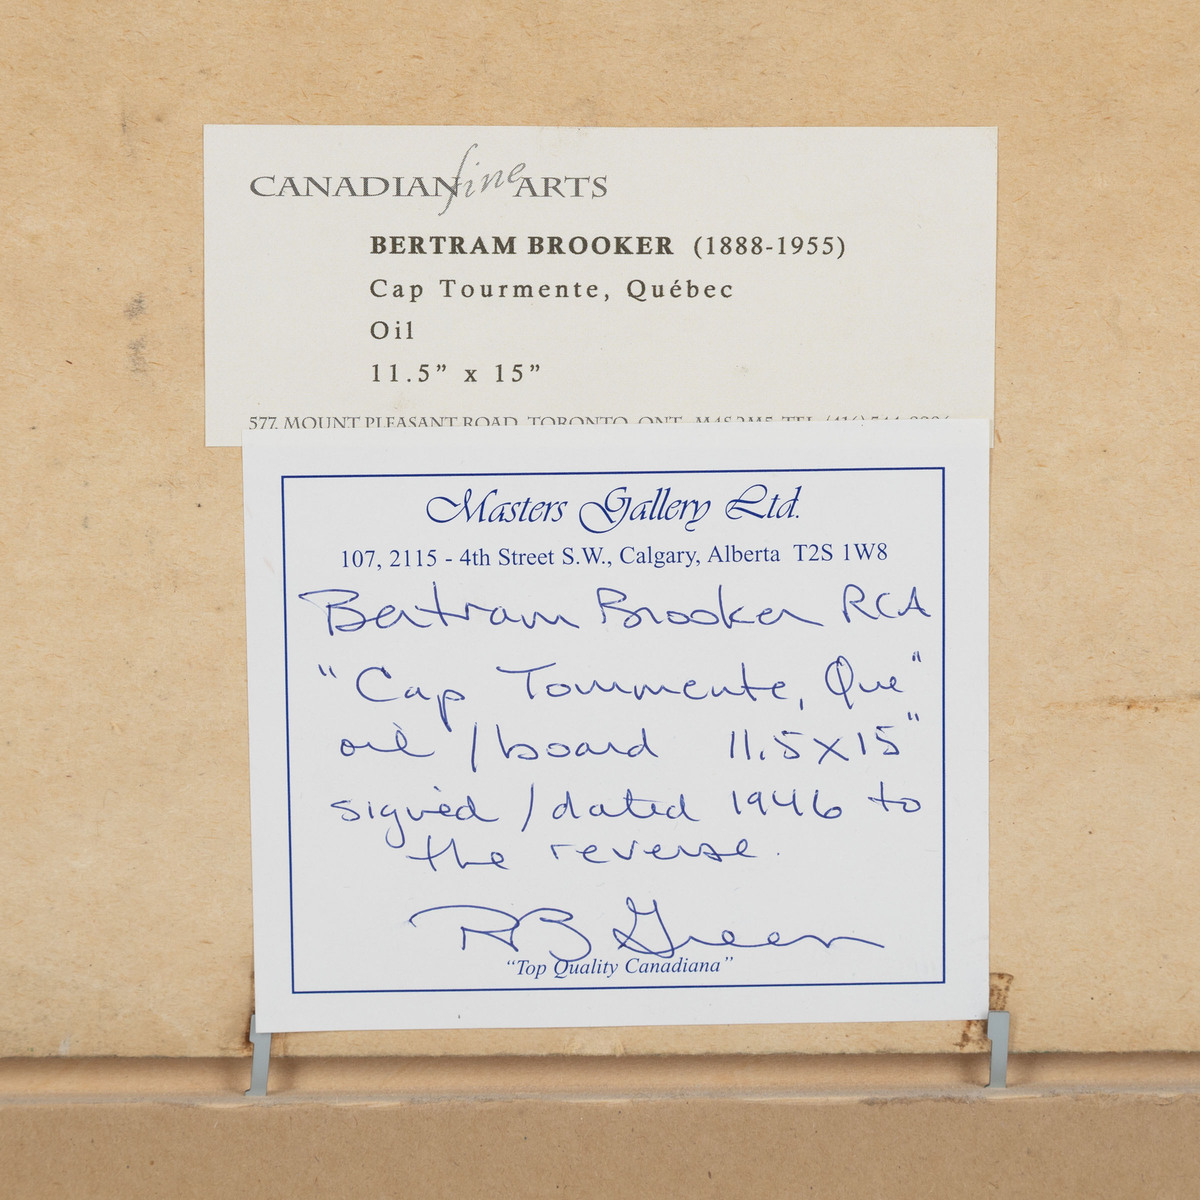 CANADIAN fine ARTS
BERTRAM BROOKER (1888-1955)
Cap Tourmente, Québec
Oil
11.5” x 15”
577, MOUNT PLEASANT ROAD, TORONTO, ONT. M4S 2M5 TEL (416) 544
Masters Gallery Ltd.
107, 2115 - 4th Street S.W., Calgary, Alberta T2S 1W8
Bertram Brooker RCA
"Cap Tourmente, Que"
oil / board 11.5 x 15"
signed / dated 1946 to
the reverse.
RB Green
“Top Quality Canadiana”